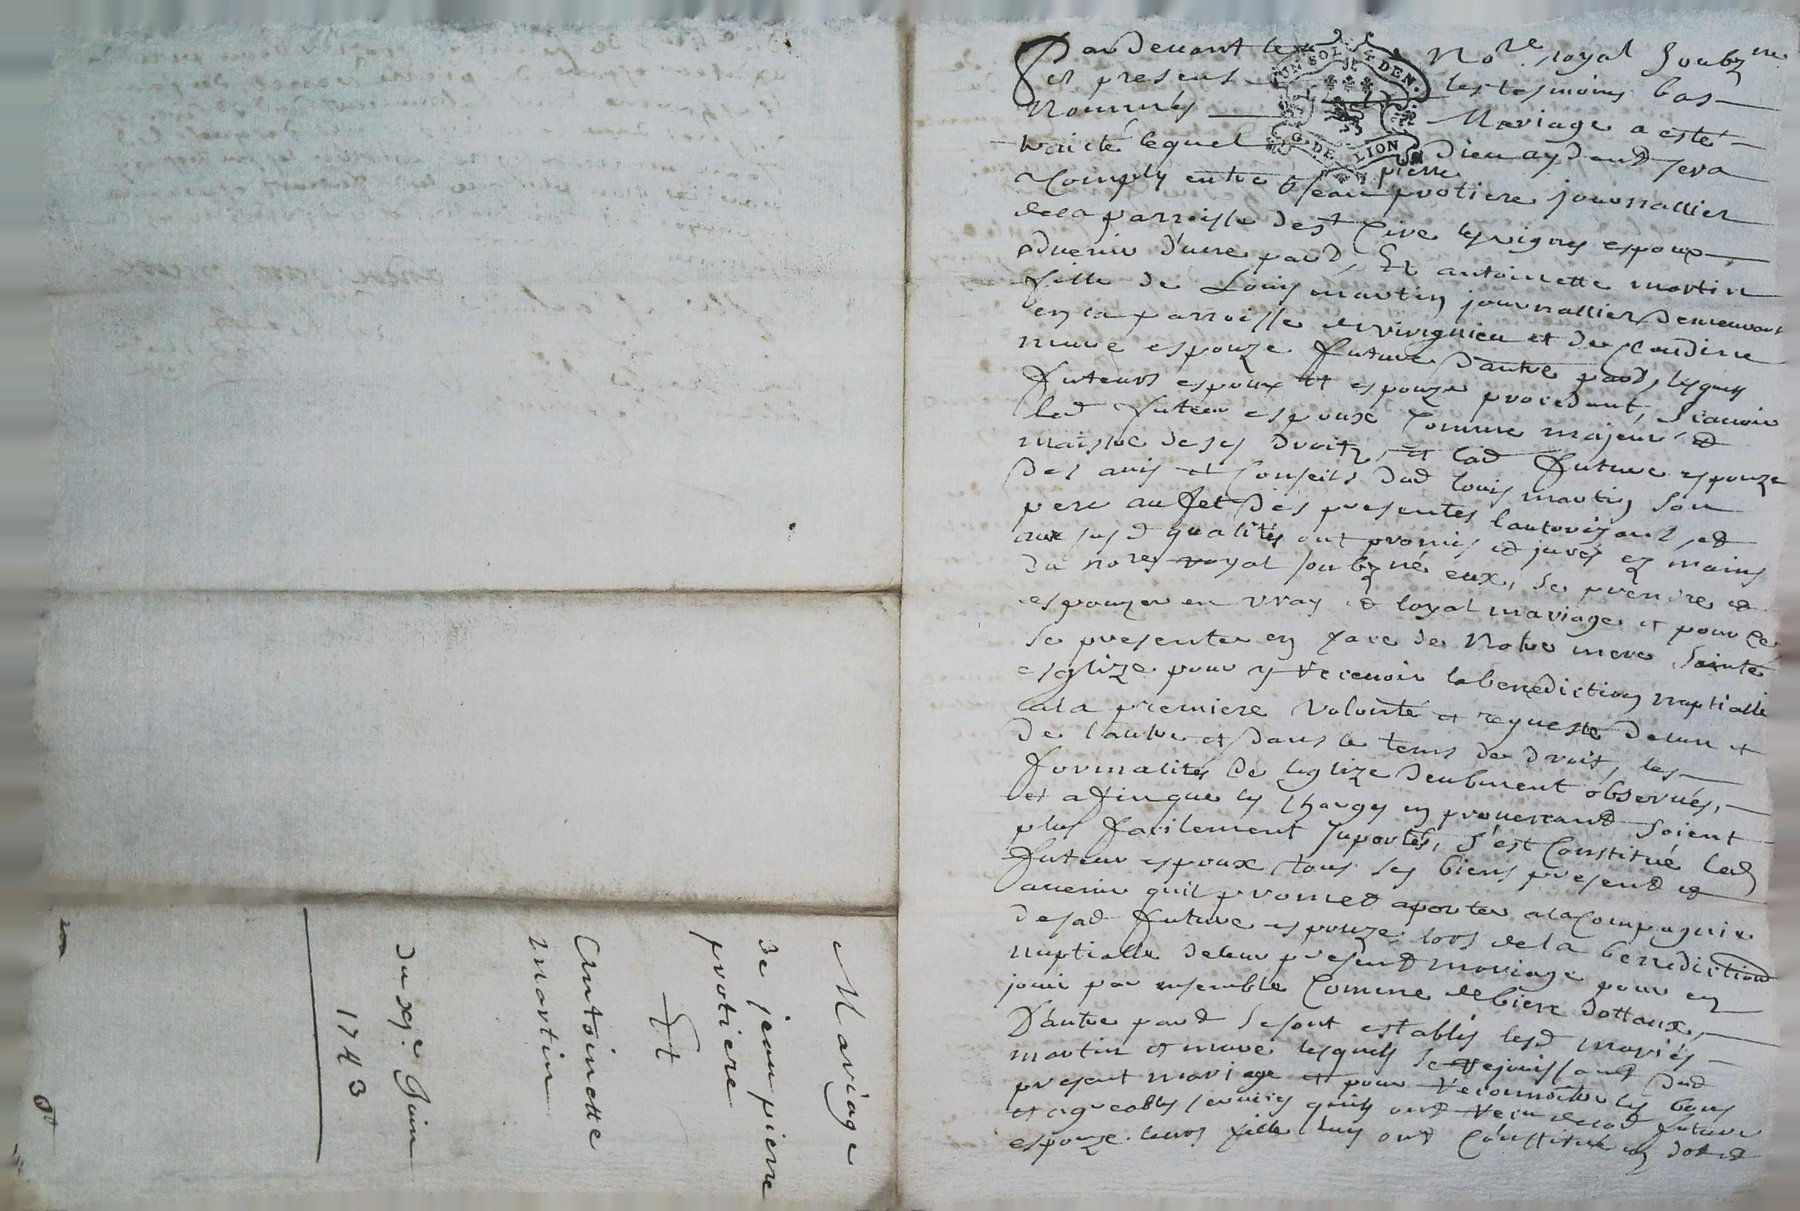 Mariage
de jean pierre
protiere
Et
Antoinette
martin
du xj.e Juin
1743
Pardevant le No.re royal soubz.ne
et presens les tesmoins bas
Nommés Mariage a esté
traicté lequel Dieu aydant sera
pierre
Comply entre Jean protiere journallier
de la parroisse de st Cire les vignes espoux
advenir d'une part, Et antoinette martin
fille de Louis martin journallier demeurant
en la parroisse de virignieu et de Claudine
mure espouze future d'autre part, lesquels
futeurs espoux et espouze procedant, scavoir
led futeur espoux Comme majeur et
maistre de ses droits, et lad future espouze
des avis et Conseils dud louis martin son
pere au fet des presentes l'autorizant led
aux susd qualités ont promis et jurés ez mains
du no.re royal soubzné eux, se prendre et
espouzer en vray et loyal mariage et pour ce
se presenter en face de Notre mere Sainte
esglize pour y recevoir la benediction nuptialle
a la premiere volonté et requeste de l'un et
de l'autre et dans le tems de droit, les
formalités de l'eglize deubment observés,
et afin que les charges en provenant soient
plus facilement suportés, s'est Constitué led
futeur espoux tous ses biens present et
avenir qu'il promet aporter a la Compagnie
de sad future espouze lors de la benediction
nuptialle de leur present mariage pour en
jouir par ensemble Comme de biens dottaux,
D'autre part se sont establis lesd mariés
martin et mure lesquels se rejouissant dud
present mariage et pour reconnoitre les bons
et agreables services qu'ils ont receu de lad future
espouze leurs fille luy ont Constitué en dot et